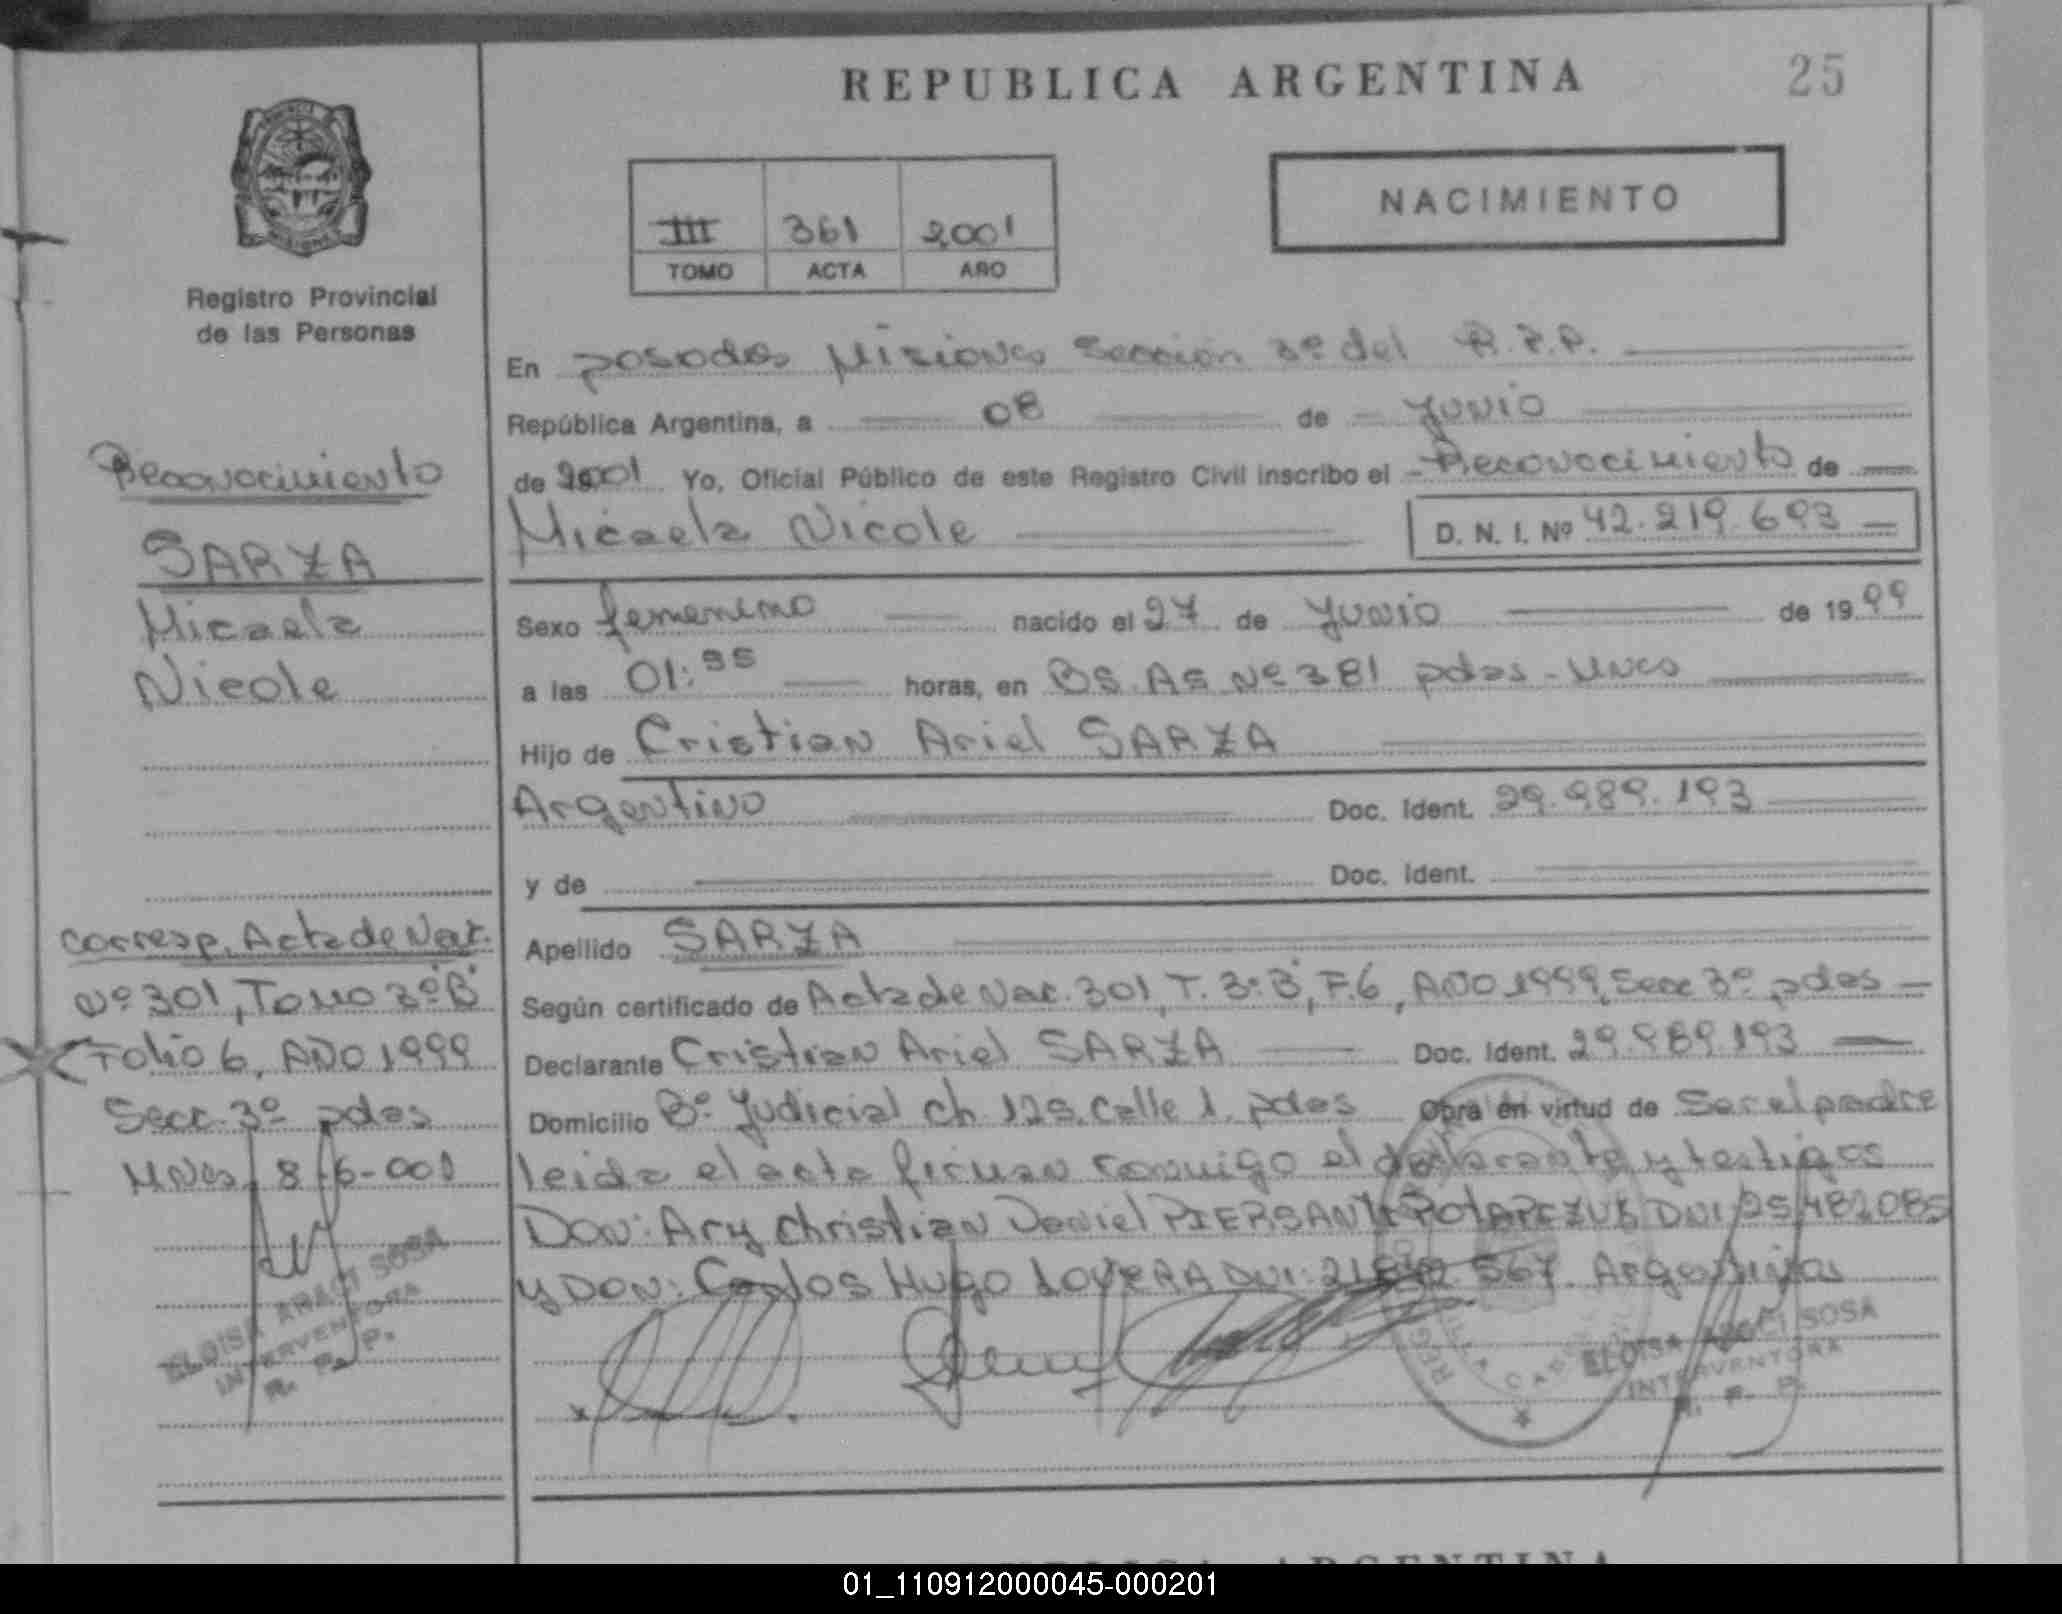 REPUBLICA ARGENTINA
25
NACIMIENTO
III 361 2001
TOMO ACTA AÑO
Registro Provincial
de las Personas
Reconocimiento
SARZA
Micaela
Nicole
Corresp. Acta de Nac.
Nº 301, Tomo 3º "B"
Folio 6, AÑO 1999
Secc. 3º pdas
Mnes, 8-6-001
ELOISA ARACI SOSA
INTERVENTORA
R. P. P.
En posadas Misiones Sección 3º del R.P.P.
República Argentina, a 08 de Junio
de 2001 Yo, Oficial Público de este Registro Civil inscribo el Reconocimiento de
Micaela Nicole D. N. I. Nº 42.219.693
Sexo femenino nacido el 27 de Junio de 1999
a las 01: horas, en BS. AS Nº 381 pdas - Mnes
Hijo de Cristian Ariel SARZA
Argentino Doc. Ident. 29.989.193
y de Doc. Ident.
Apellido SARZA
Según certificado de Acta de Nac. 301, T. 3º "B", F. 6, AÑO 1999, Secc 3º pdas
Declarante Cristian Ariel SARZA Doc. Ident. 29.989.193
Domicilio Bº Judicial Ch. 125. Calle 1. pdas Obra en virtud de Ser el padre
leida el acta firman conmigo el declarante y testigos
Don: Ary Christian Daniel PIERSANTI DNI: 25482085
y DON: Carlos Hugo LOVERA DNI: 567. Argentinos
ELOISA ARACI SOSA
INTERVENTORA
R. P. P.
REPUBLICA ARGENTINA
01_110912000045-000201